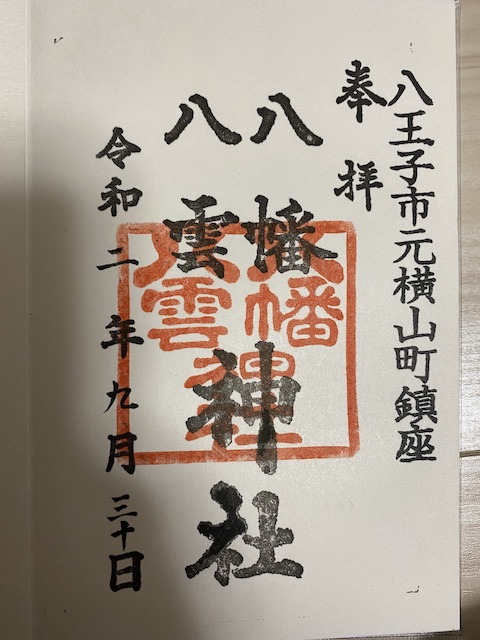 八王子市元横山町鎮座
奉拝
八幡
八雲
神社
令和二年九月三十日
八幡
八雲
神社